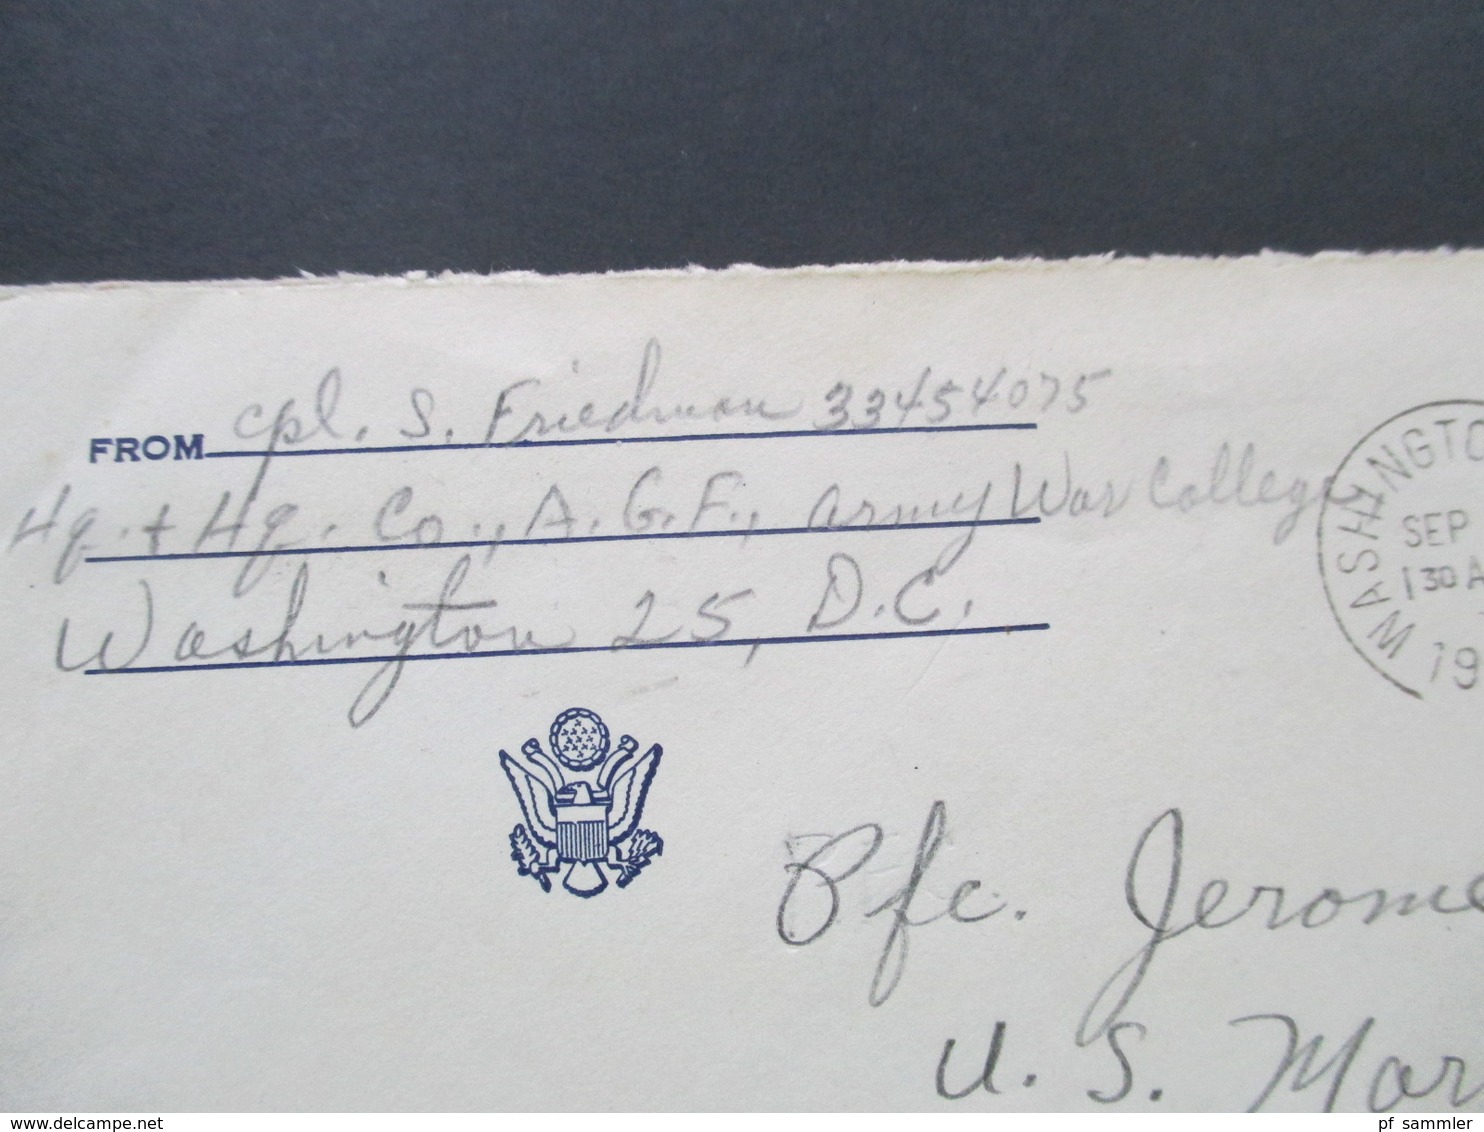 FROM cpl. S. Friedman 33454075
Hq. + Hq. Co., A.G.F., Army War College
Washington 25, D.C.
WASHINGTO
SEP
1 30 A
19
Pfc. Jerome
U. S. Mar
delcampe.net
pf_sammler